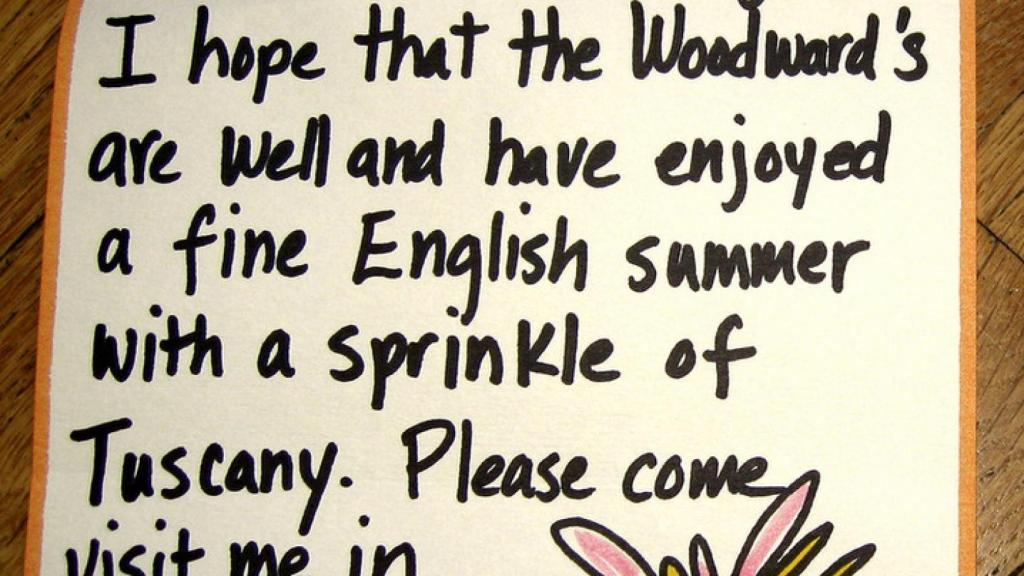 I hope that the Woodward's
are well and have enjoyed
a fine English summer
with a sprinkle of
Tuscany. Please come
visit me in